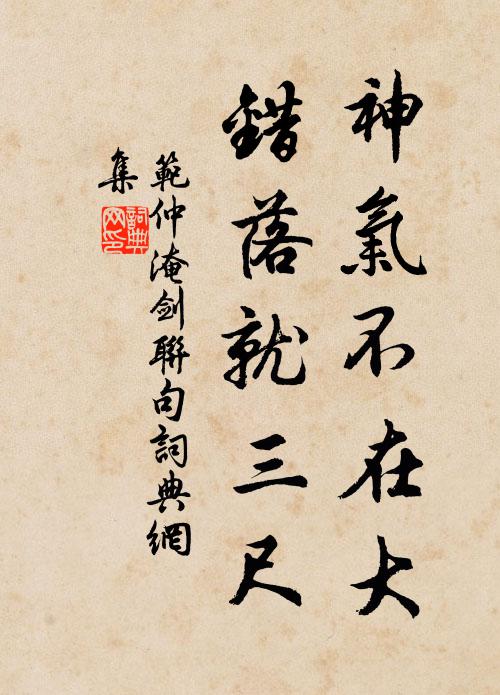 神氣不在大
錯落就三尺
範仲淹劍聯句詞典網
集
詞典網印